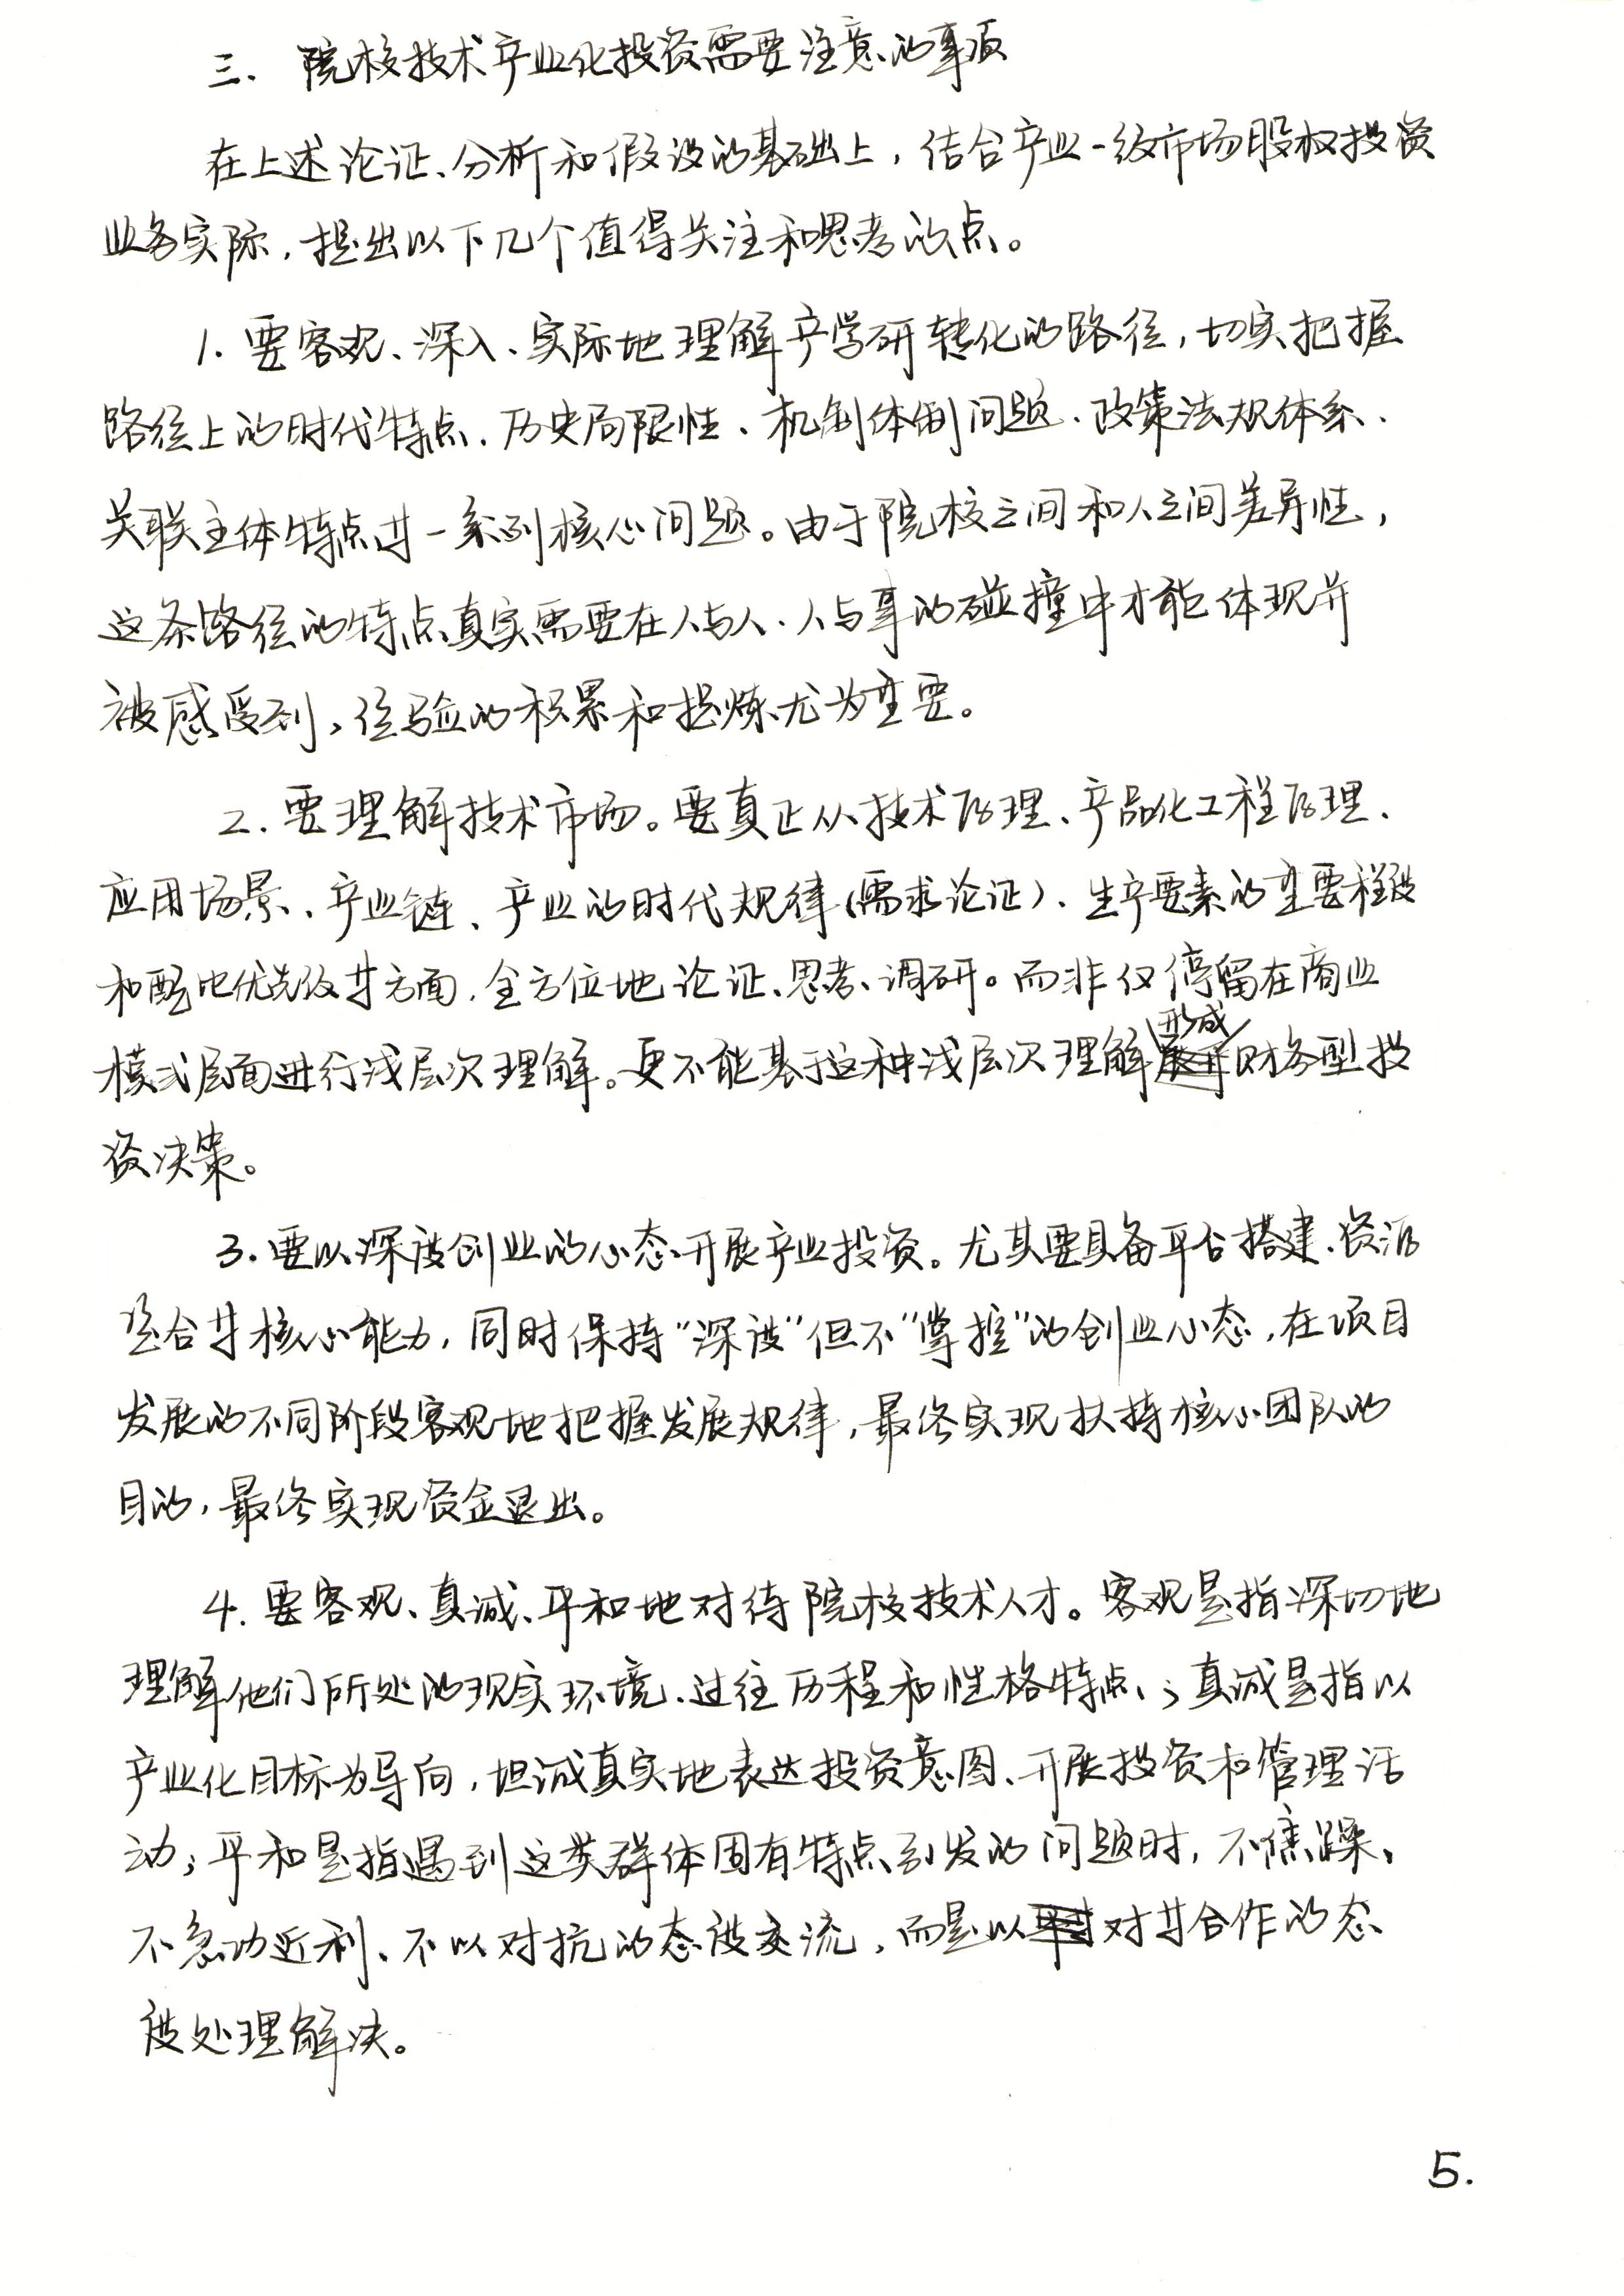 三. 院校技术产业化投资需要注意的事项
在上述论证、分析和假设的基础上，结合产业一级市场股权投资
业务实际，提出以下几个值得关注和思考的点。
1. 要客观、深入、实际地理解产学研转化的路径，切实把握
路径上的时代特点、历史局限性、机制体制问题、政策法规体系、
关联主体特点等一系列核心问题。由于院校之间和人之间差异性，
这条路径的特点真实需要在人与人、人与事的碰撞中才能体现并
被感受到，经验的积累和提炼尤为重要。
2. 要理解技术市场。要真正从技术原理、产品化工程原理、
应用场景、产业链、产业的时代规律（需求论证）、生产要素的重要程度
和配比优先级等方面，全方位地论证、思考、调研。而非仅停留在商业
模式层面进行浅层次理解。更不能基于这种浅层次理解形成财务型投
资决策。
3. 要以深度创业的心态开展产业投资。尤其要具备平台搭建、资源
整合等核心能力，同时保持“深度”但不“掌控”的创业心态，在项目
发展的不同阶段客观地把握发展规律，最终实现扶持核心团队的
目的，最终实现资金退出。
4. 要客观、真诚、平和地对待院校技术人才。客观是指深切地
理解他们所处的现实环境、过往历程和性格特点；真诚是指以
产业化目标为导向，坦诚真实地表达投资意图、开展投资和管理活
动；平和是指遇到这类群体固有特点引发的问题时，不焦躁、
不急功近利、不以对抗的态度交流，而是以对等合作的态
度处理解决。
5.